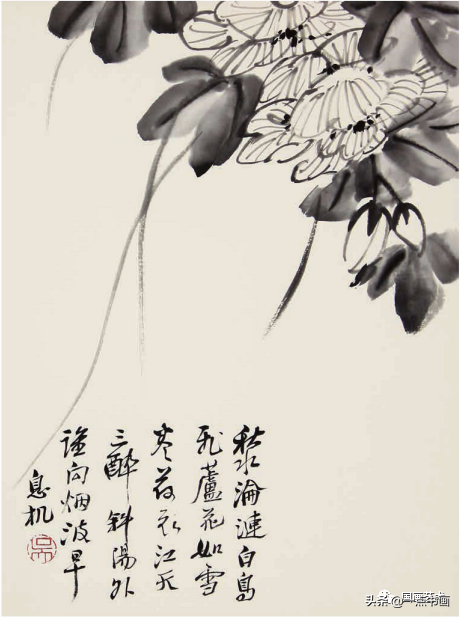 秋水淪漣白鳥
飛蘆花如雪
江天
三醉斜陽外
誰向烟波早
息机
头条@一点书画